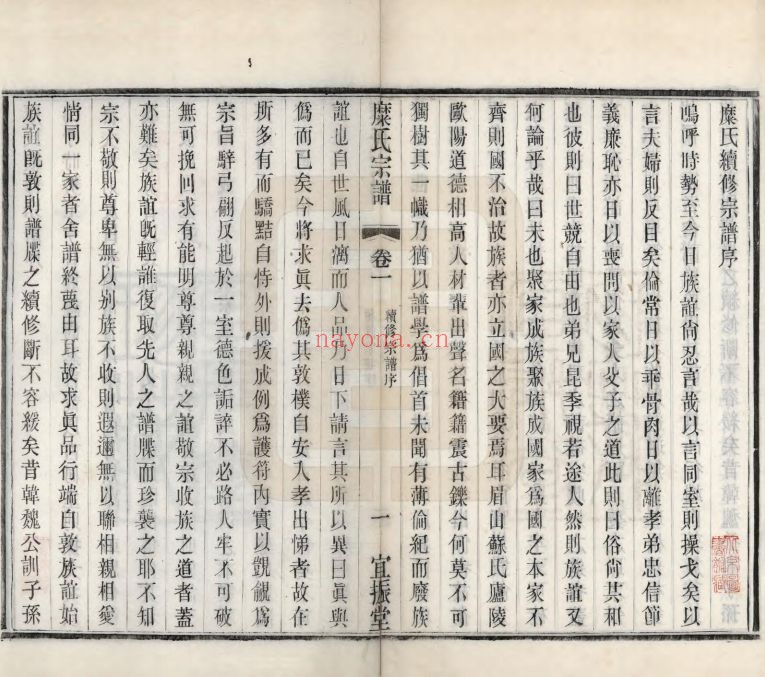 糜氏續修宗譜序
嗚呼時勢至今日族誼尙忍言哉以言同室則操戈矣以
言夫婦則反目矣倫常日以乖骨肉日以離孝弟忠信節
義廉恥亦日以喪問以家人父子之道此則曰俗尙其和
也彼則曰世競自由也弟兄昆季視若途人然則族誼又
何論乎哉曰未也聚家成族聚族成國家爲國之本家不
齊則國不治故族者亦立國之大要焉耳眉山蘇氏廬陵
歐陽道德相高人材輩出聲名籍籍震古鑠今何莫不可
獨樹其一幟乃猶以譜學爲倡首未聞有薄倫紀而廢族
糜氏宗譜
卷一
續修宗譜序
一
宜振堂
誼也自世風日漓而人品乃日下請言其所以異曰眞與
僞而已矣今將求眞去僞其敦樸自安入孝出悌者故在
所多有而驕黠自恃外則援成例爲護符內實以覬覦爲
宗旨騂弓翩反起於一室德色詬誶不必路人牢不可破
無可挽回求有能明尊尊親親之誼敬宗收族之道者蓋
亦難矣族誼旣輕誰復取先人之譜牒而珍襲之耶不知
宗不敬則尊卑無以别族不收則遐邇無以聯相親相愛
情同一家者舍譜終蔑由耳故求眞品行端自敦族誼始
族誼旣敦則譜牒之續修斷不容緩矣昔韓魏公訓子孫
nayona.cn